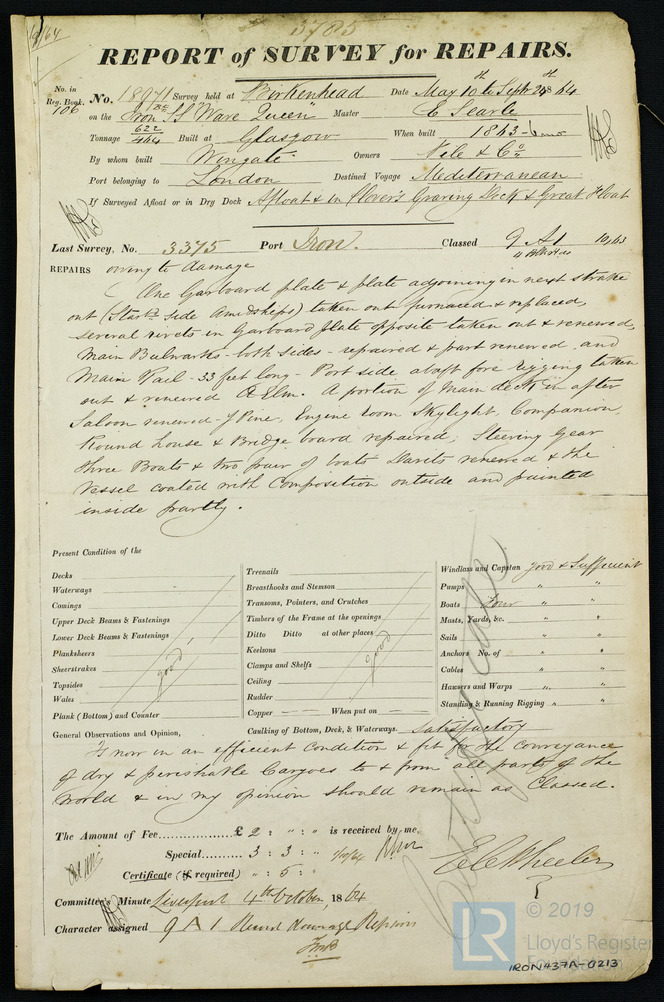 3785
9/64
REPORT of SURVEY for REPAIRS.
No. in Reg. Book. No. 18971 Survey held at Birkenhead Date May 10th to Septr 28th 64
106 on the Iron SS "Wave Queen" Master E Searle
Tonnage 622/464 Built at Glasgow When built 1863-6mo
By whom built Wingate Owners Pile & Co
Port belonging to London Destined Voyage Mediterranean
If Surveyed Afloat or in Dry Dock Afloat & in Clover's Graving Dock & Great Float
Last Survey, No. 3375 Port Iron. Classed 9 A1 10,63
REPAIRS owing to damage
One Garboard plate & plate adjoining in next strake
out (Starbd. Side Amidships) taken out furnaced & replaced,
several rivets in Garboard plate opposite taken out & renewed,
Main Bulwarks - both sides - repaired & part renewed and
Main Rail - 33 feet long - Port side abaft fore rigging taken
out & renewed A Elm. A portion of Main deck in after
Saloon renewed - Y Pine, Engine room Skylight, Companion,
Round house & Bridge board repaired, Steering Gear
three Boats & two pair of boats Davits renewed & the
Vessel coated with Composition outside and painted
inside partly.
Present Condition of the
Decks
Waterways
Comings
Upper Deck Beams & Fastenings
Lower Deck Beams & Fastenings
Planksheers
Sheerstrakes
Topsides
Wales
Plank (Bottom) and Counter
good
Treenails
Breasthooks and Stemson
Transoms, Pointers, and Crutches
Timbers of the Frame at the openings
Ditto Ditto at other places
Keelsons
Clamps and Shelfs
Ceiling
Rudder
Copper — When put on —
good
Windlass and Capstan good & Sufficient
Pumps " "
Boats Four " "
Masts, Yards, &c. " "
Sails " "
Anchors No. of " "
Cables " "
Hawsers and Warps " "
Standing & Running Rigging " "
Caulking of Bottom, Deck, & Waterways. Satisfactory
General Observations and Opinion,
Is now in an efficient Condition & fit for the conveyance
of dry & perishable Cargoes to & from all parts of the
World & in my opinion should remain as Classed.
Certificate
The Amount of Fee............ £ 2 : " : " is received by me,
Special............ 3 : 3 : "
Certificate (if required) " : 5 : "
E C Wheeler
Committee's Minute Liverpool 4th October, 1864
Character assigned 9 A 1
© 2019
LR Lloyd's Register
Foundation
IRON437A-0213